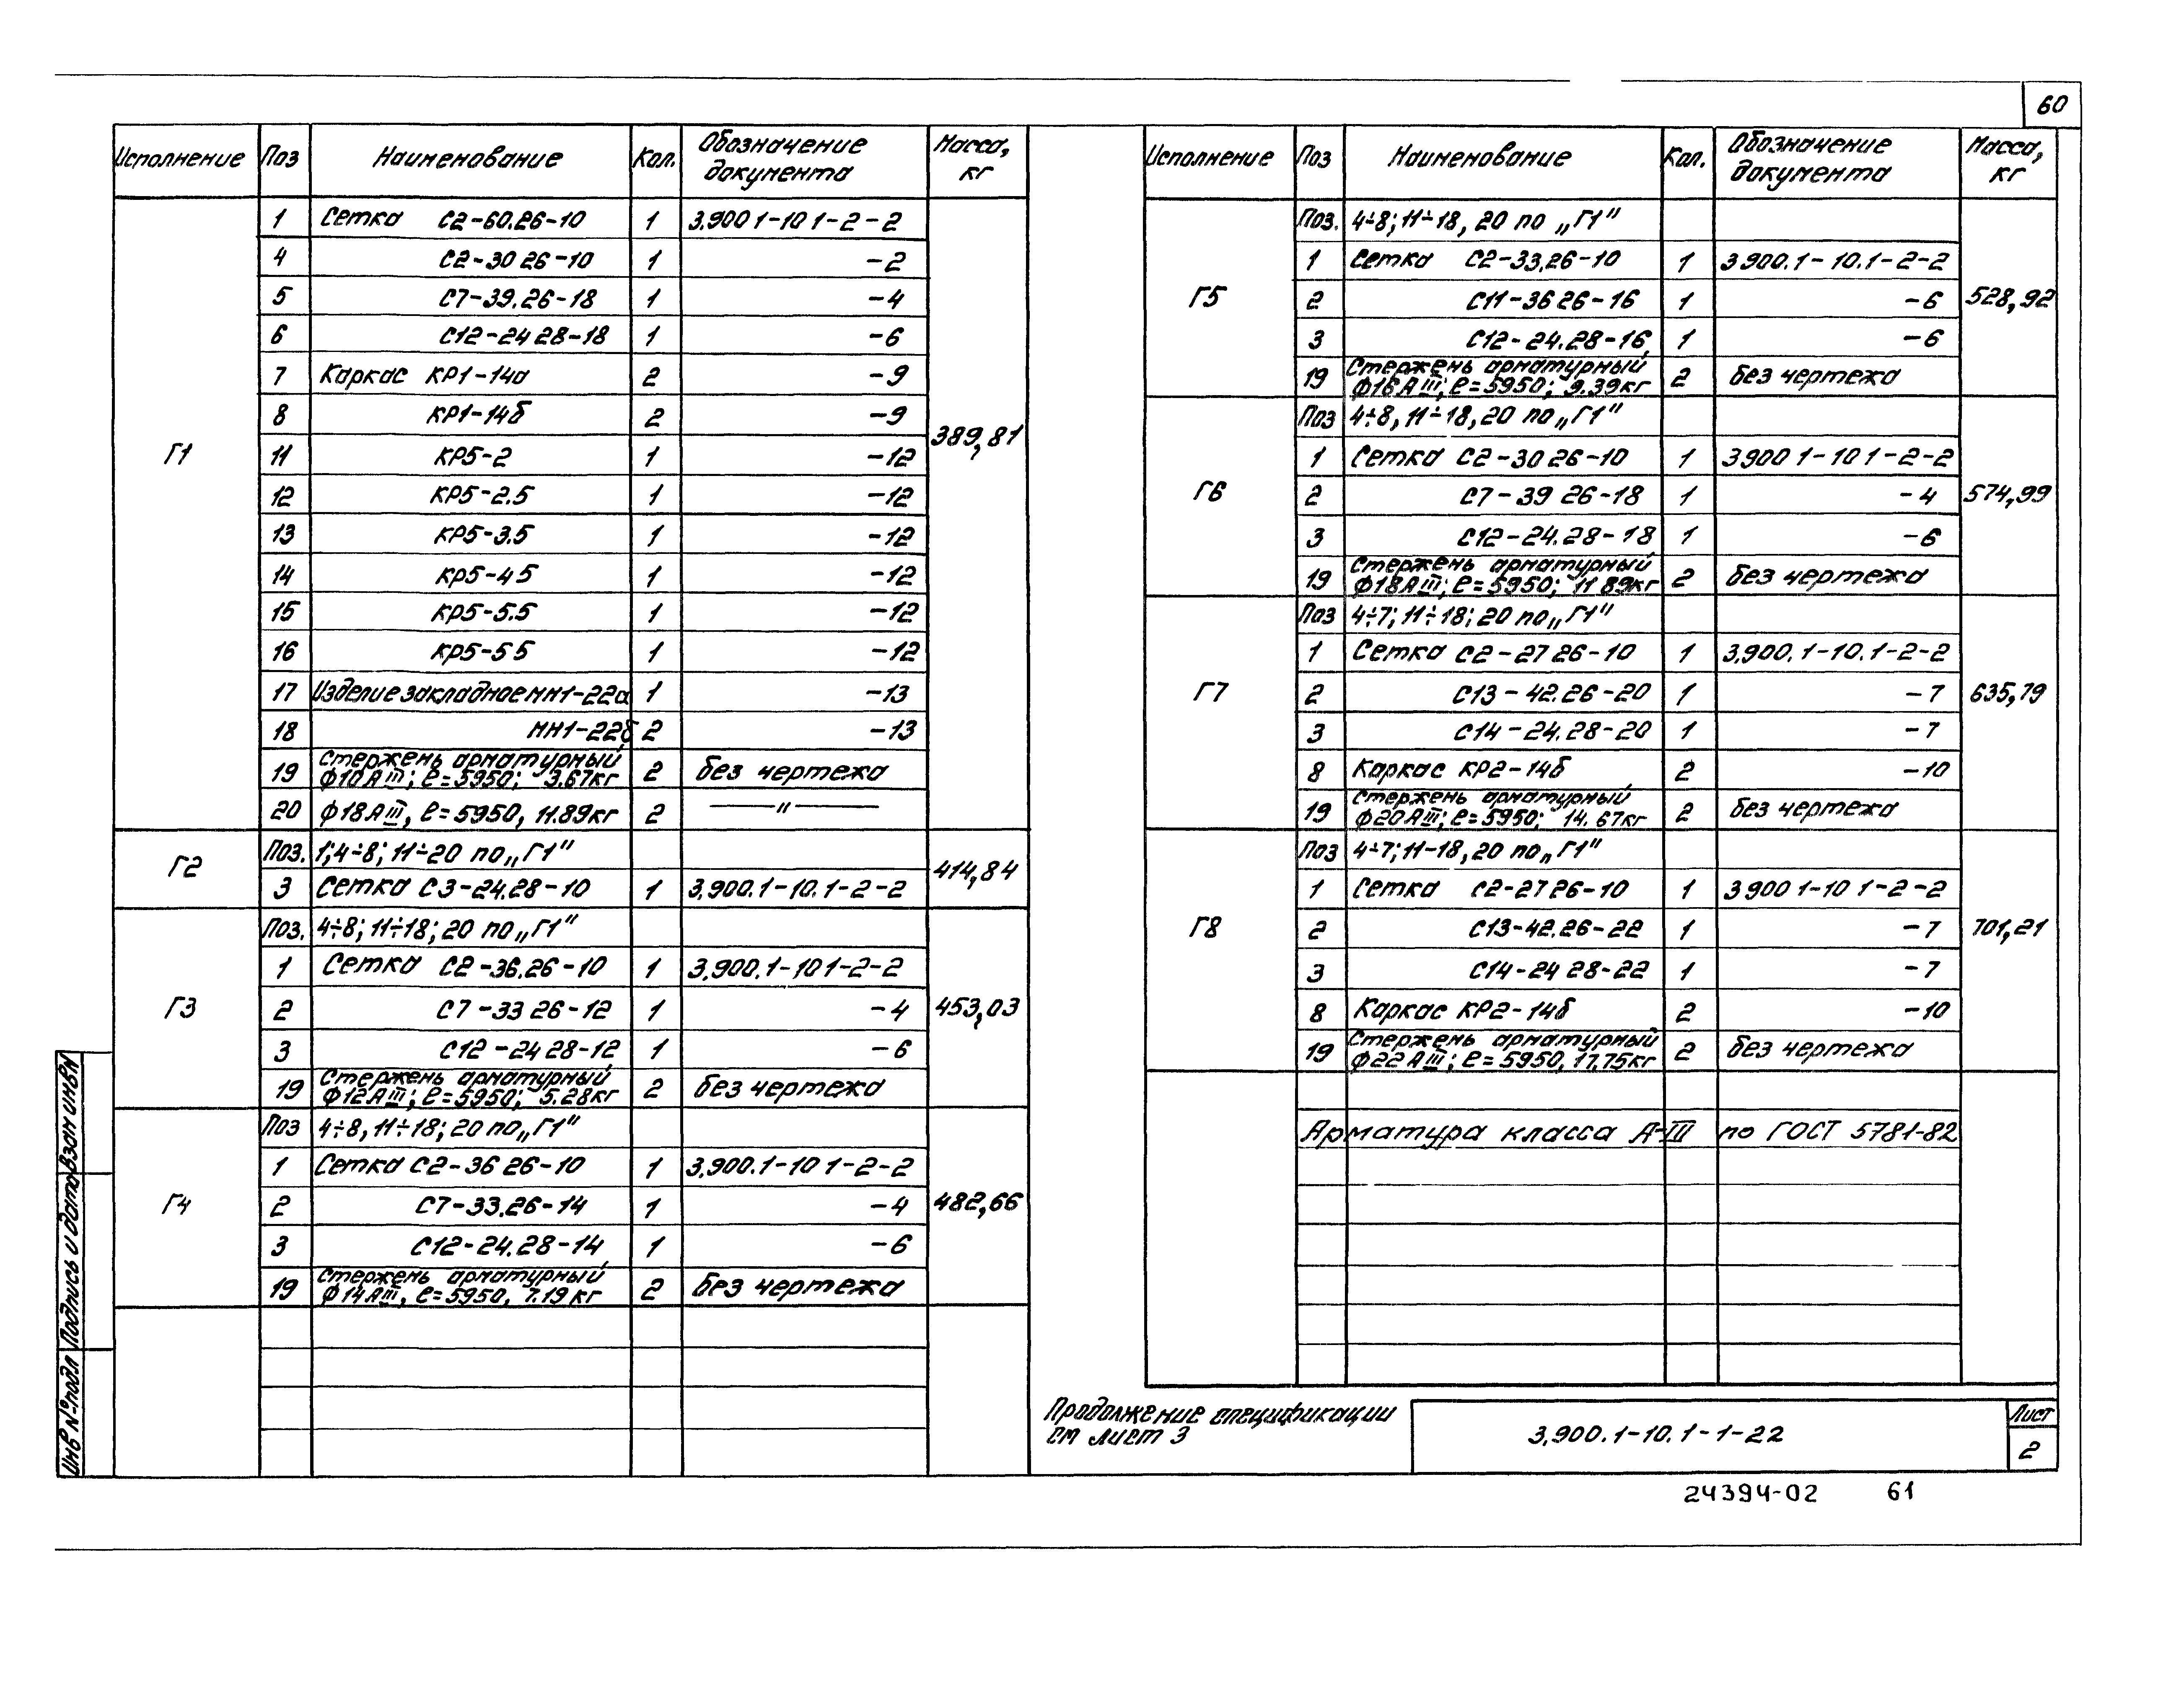 60
Исполнение Поз Наименование Кол. Обозначение документа Масса, кг
Г1 389,81
1 Сетка С2-60.26-10 1 3.900 1-10 1-2-2
4 С2-30 26-10 1 -2
5 С7-39.26-18 1 -4
6 С12-24 28-18 1 -6
7 Каркас КР1-14а 2 -9
8 КР1-14б 2 -9
11 КР5-2 1 -12
12 КР5-2.5 1 -12
13 КР5-3.5 1 -12
14 КР5-4 5 1 -12
15 КР5-5.5 1 -12
16 КР5-5 5 1 -12
17 Изделие закладное МН1-22а 1 -13
18 МН1-22б 2 -13
19 Стержень арматурный
ф10АIII; ℓ=5950; 3.67кг 2 без чертежа
20 ф18АIII, ℓ=5950, 11.89кг 2 —"—
Г2 414,84
Поз. 1;4÷8; 11÷20 по „Г1"
3 Сетка С3-24.28-10 1 3.900.1-10.1-2-2
Г3 453,03
Поз. 4÷8; 11÷18; 20 по „Г1"
1 Сетка С2-36.26-10 1 3.900.1-10 1-2-2
2 С7-33 26-12 1 -4
3 С12-24 28-12 1 -6
19 Стержень арматурный
ф12АIII; ℓ=5950; 5.28кг 2 без чертежа
Г4 482,66
Поз 4÷8, 11÷18; 20 по „Г1"
1 Сетка С2-36 26-10 1 3.900.1-10 1-2-2
2 С7-33.26-14 1 -4
3 С12-24.28-14 1 -6
19 Стержень арматурный
ф14АIII, ℓ=5950, 7.19кг 2 без чертежа
Исполнение Поз Наименование Кол. Обозначение документа Масса, кг
Г5 528,92
Поз. 4÷8; 11÷18, 20 по „Г1"
1 Сетка С2-33.26-10 1 3 900.1-10.1-2-2
2 С11-36 26-16 1 -6
3 С12-24.28-16 1 -6
19 Стержень арматурный
ф16АIII; ℓ=5950; 9.39кг 2 без чертежа
Г6 574,99
Поз 4÷8, 11÷18, 20 по „Г1"
1 Сетка С2-30 26-10 1 3 900 1-10 1-2-2
2 С7-39 26-18 1 -4
3 С12-24.28-18 1 -6
19 Стержень арматурный
ф18АIII; ℓ=5950; 11 89кг 2 без чертежа
Г7 635,79
Поз 4÷7; 11÷18; 20 по „Г1"
1 Сетка С2-27 26-10 1 3.900.1-10.1-2-2
2 С13-42.26-20 1 -7
3 С14-24.28-20 1 -7
8 Каркас КР2-14б 2 -10
19 Стержень арматурный
ф20АIII; ℓ=5950; 14.67кг 2 без чертежа
Г8 701,21
Поз 4÷7; 11-18, 20 по „Г1"
1 Сетка С2-27 26-10 1 3 900 1-10 1-2-2
2 С13-42.26-22 1 -7
3 С14-24 28-22 1 -7
8 Каркас КР2-14б 2 -10
19 Стержень арматурный
ф22АIII; ℓ=5950, 17.75кг 2 без чертежа
Арматура класса А-III по ГОСТ 5781-82
Продолжение спецификации
см лист 3
3.900.1-10.1-1-22
Лист
2
24394-02 61
Инв №подл Подпись и дата Взам инв№